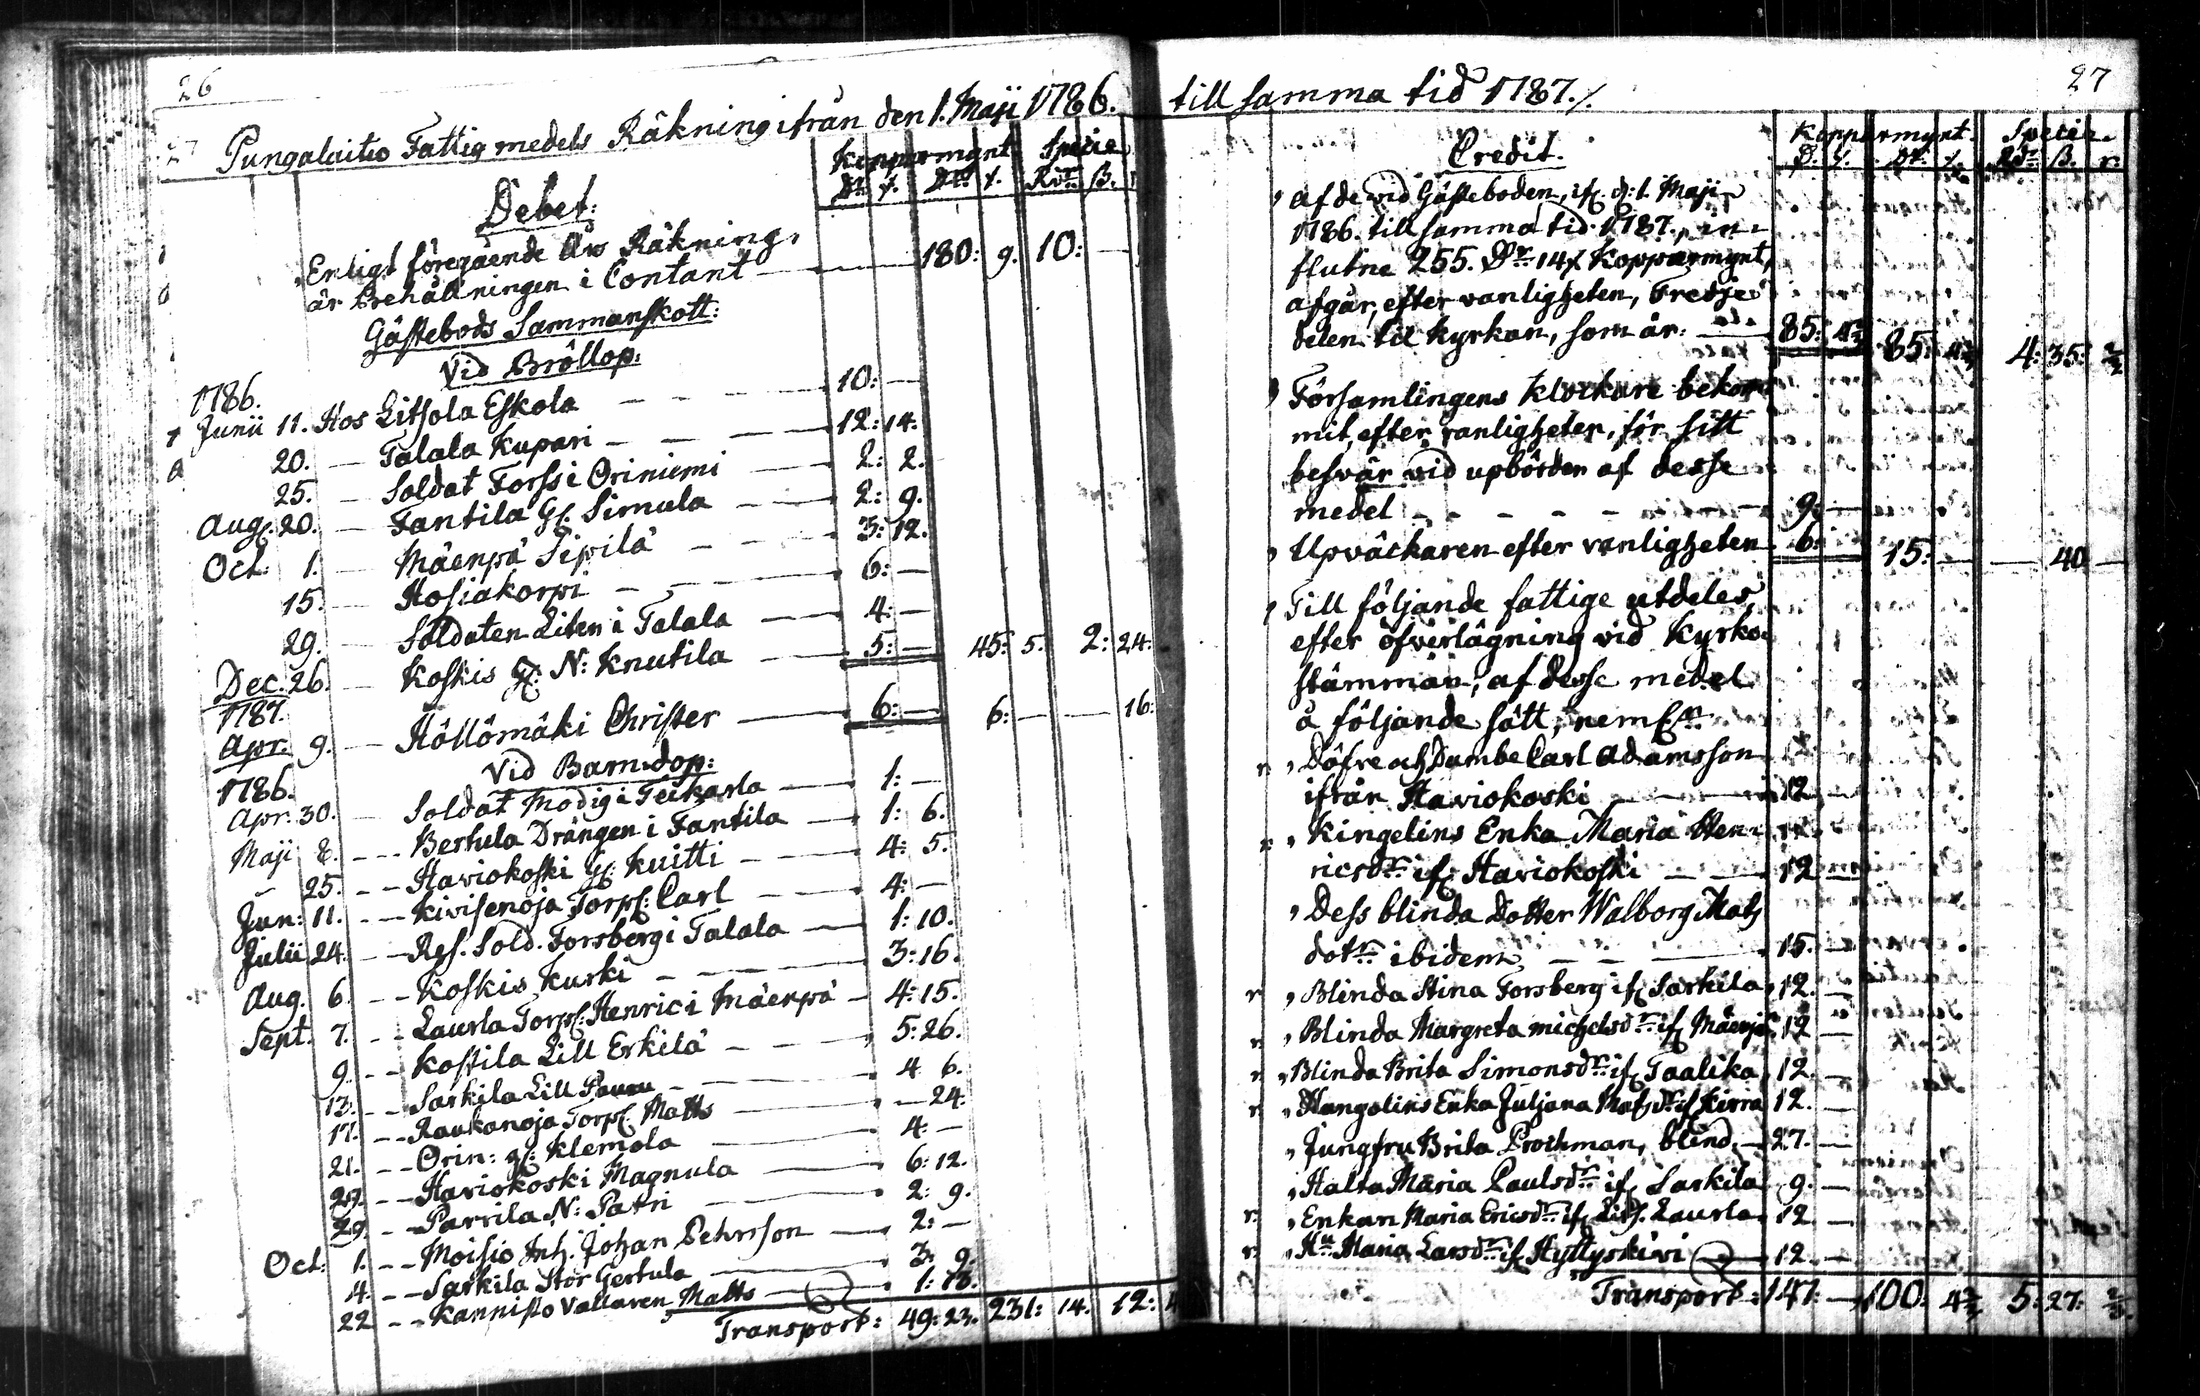 26
Pungalaitio Fattig medels Räkning ifrån den 1. Maji 1786.
Koppermynt Specie
Dr. /. Dr. /. Rdr ß.
Debet:
Enligt föregående Års Räkning,
är Behållningen i Contant — 180: 9. 10: —
Gästebods Sammanskott:
Vid Bröllop:
1786.
Junii 11. Hos Litsola Eskola — 10: —
20. — Talala Kupari — 12: 14.
25. — Soldat Forss i Oriniemi — 2: 2.
Aug. 20. — Fantila Simula — 2: 9.
Oct. 1. — Mäenpä Sipilä — 3: 12.
15. — Hosiakorpi — 6: —
29. — Soldaten Liten i Talala — 4: —
Dec. 26. — Koskis N: Knutila — 5: — 45: 5. 2: 24.
1787.
Apr. 9. — Höllömäki Christer — 6: — 6: — — 16:
Vid Barndop:
1786.
Apr. 30. — Soldat Modig i Teikarla — 1: —
Maji 8. — Bertula Drängen i Fantila — 1: 6.
25. — Haviokoski Kuitti — 4: 5.
Jun: 11. — Kivisenoja Torp: Carl — 4: —
Julii 24. — Res. Sold. Forsberg i Talala — 1: 10.
Aug. 6. — Koskis Kurki — 3: 16.
Sept. 7. — Laurla Torp: Henric i Mäenpä — 4: 15.
9. — Kostila Lill Erkilä — 5: 26.
13. — Sarkila Lill — 4 6.
17. — Raukanoja Torp: Matts — — 24.
21. — Orin: Klemola — 4: —
29. — Haviokoski Magnula — 6: 12.
29. — Parrila N: Patri — 2: 9.
Oct: 1. — Moisio Inh. Johan Pehrsson — 2: —
4. — Sarkila Stor Gertula — 3: 9.
22 — Kannisto Vallaren Matts — 1: 18.
Transport: 49: 23. 231: 14. 12:
27
till samma tid 1787./.
Koppermynt. Specie
D. /. Dr. /. Rdr ß. r.
Credit.
Af de vid Gästeboden, if. d: 1. Maji
1786. till samma tid 1787., in-
flutne 255. Dr 14/. Koppermynt,
afgår, efter vanligheten, Tredje
delen til Kyrkan, som är: — 85: 4⅔ 85: 4⅔ 4: 35:
Församlingens Klockare bekom
mit, efter vanligheten, för sitt
besvär vid upbörden af desse
medel — 9: —
Upväckaren efter vanligheten 6: 15: — — 40 —
Till följande fattige utdeles,
efter öfverlägning vid Kyrko-
stämman, af desse medel
å följande sätt, neml.n
Döfve och Dumbe Carl Adamsson
ifrån Haviokoski — 12 —
Kingelins Enka Maria Hen-
ricsdr if. Haviokoski — 12 —
Dess blinda Dotter Walborg Mats
dotr ibidem — 15. —
Blinda Stina Forsberg if. Sarkila, 12. —
Blinda Margreta Michelsdr if. Mäenpä 12 —
Blinda Brita Simonsdr if. Taalika, 12. —
Hangolins Enka Juljana Matsdr if. Kierra 12. —
Jungfru Brita Prochman, blind, — 27. —
Halta Maria Paulsdr if. Sarkila 9. —
Enkan Maria Ericsdr if. Lits. Laurla 12 —
Hu Maria Larsdr if. Hyttyskivi — 12 —
Transport: 147: — 100: 4⅔ 5: 27: